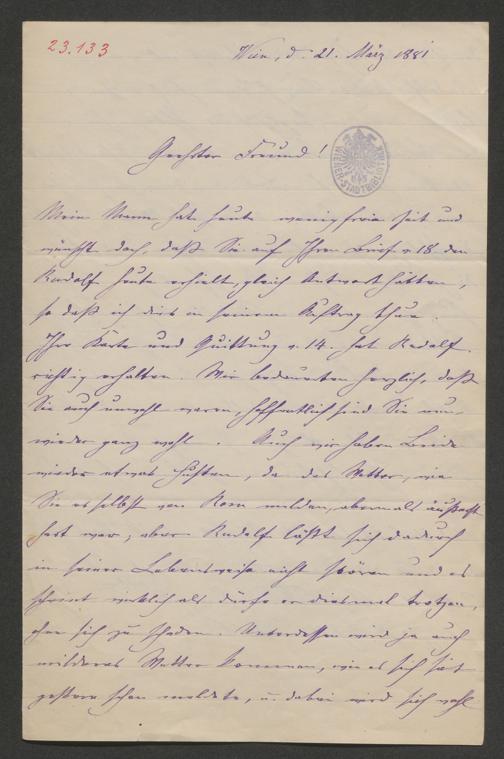 23.133
Wien, d. 21. März 1881
Geehrter Freund!
WIENER STADTBIBLIOTHEK
Mein Mann hat heute wenig freie Zeit und
wünscht doch, daß Sie auf Ihren Brief v 18. den
Rudolf heute erhielt, gleich Antwort hätten,
so daß ich dies in seinem Auftrag thue.
Ihre Karte und Quittung v. 14. hat Rudolf
richtig erhalten. Wir bedauerten herzlich, daß
Sie auch unwohl waren, hoffentlich sind Sie nun
wieder ganz wohl. Auch wir haben Beide
wieder etwas Husten, da das Wetter, wie
Sie es selbst von Rom melden, abermals äußerst
hart war, aber Rudolf läßt sich dadurch
in seiner Lebensweise nicht stören und es
scheint wirklich als dürfe er diesmal trotzen,
ohne sich zu schaden. Unterdessen wird ja auch
milderes Wetter kommen, wie es sich seit
gestern schon meldete, u. dabei wird sich wohl